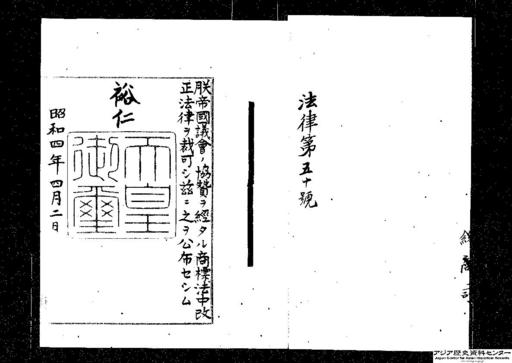 法律第五十號
朕帝國議會ノ協贊ヲ經タル商標法中改
正法律ヲ裁可シ茲ニ之ヲ公布セシム
裕仁
天皇
御璽
昭和四年四月二日
アジア歴史資料センター
Japan Center for Asian Historical Records